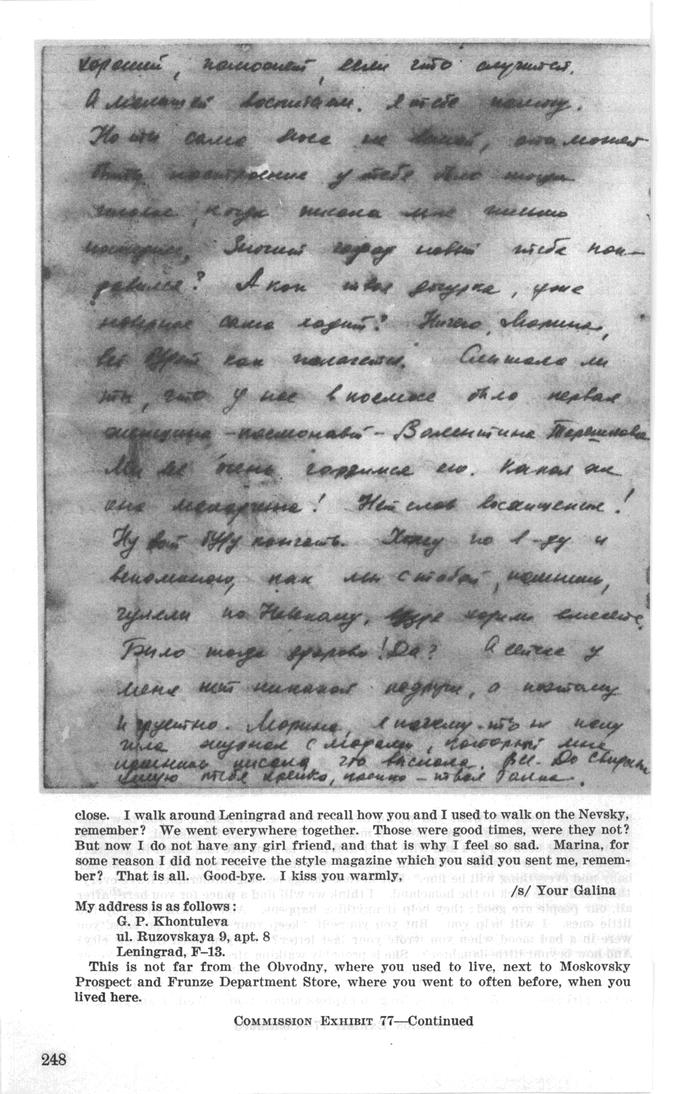 хороший, поможет, если что случится.
А малышей воспитаем. Я тебе помогу.
Но ты сама носа не вешай, это может
быть настроение у тебя было тогда
плохое, когда писала мне письмо
последнее. Значит город новый тебе пон-
равился? А как твоя дочурка, уже
наверное сама ходит? Ничего, Марина,
всё будет как полагается. Слышала ли
ты, что у нас в космосе была первая
женщина-космонавт - Валентина Терешкова
Мы все очень гордимся ею. Какая же
она молодчина! Нет слов восхищения!
Ну вот буду кончать. Хожу по Л-ду и
вспоминаю, как мы с тобой, помнишь,
гуляли по Невскому, ходили вместе.
Было тогда здорово! Да? А сейчас у
меня нет никакой подруги, а поэтому
и грустно. Марина, я почему-то не полу
чила журнал с модами, который мне
писала, что выслала. Все. До свидан
Целую тебя крепко, крепко - твоя Галина.
close. I walk around Leningrad and recall how you and I used to walk on the Nevsky,
remember? We went everywhere together. Those were good times, were they not?
But now I do not have any girl friend, and that is why I feel so sad. Marina, for
some reason I did not receive the style magazine which you said you sent me, remem-
ber? That is all. Good-bye. I kiss you warmly,
/s/ Your Galina
My address is as follows:
G. P. Khontuleva
ul. Ruzovskaya 9, apt. 8
Leningrad, F-13.
This is not far from the Obvodny, where you used to live, next to Moskovsky
Prospect and Frunze Department Store, where you went to often before, when you
lived here.
COMMISSION EXHIBIT 77—Continued
248